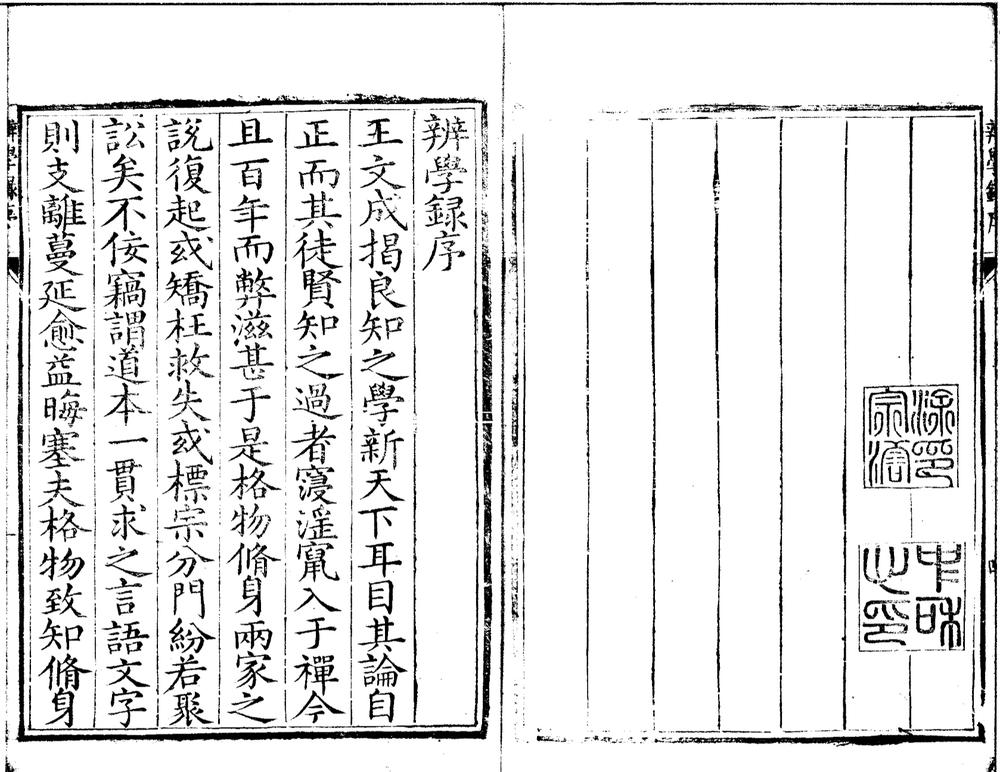 辨學錄序
宗濬
涂印
中味
之印
辨學録序
王文成揭良知之學新天下耳目其論自
正而其徒賢知之過者寖滛竄入于禪今
且百年而弊滋甚于是格物脩身兩家之
說復起或矯枉救失或標宗分門紛若聚
訟矣不佞竊謂道本一貫求之言語文字
則支離蔓延愈益晦塞夫格物致知脩身